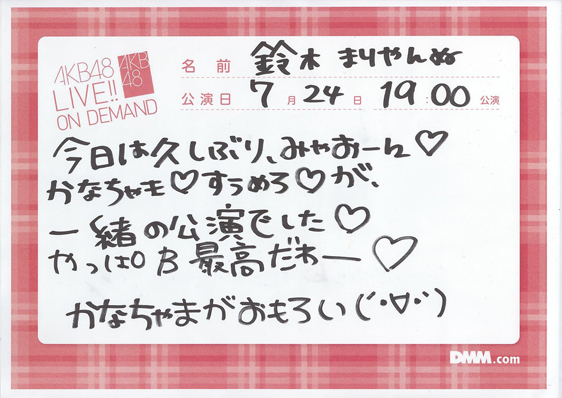 AKB48
LIVE!!
ON DEMAND
AKB
48
名前 鈴木 まりやんぬ
公演日 7月24日 19:00公演
今日は久しぶり、みゃおーん♡
かなちゃま♡すうめろ♡が、
一緒の公演でした♡
やっぱりB最高だわー♡
かなちゃまがおもろい(´・∀・`)
DMM.com